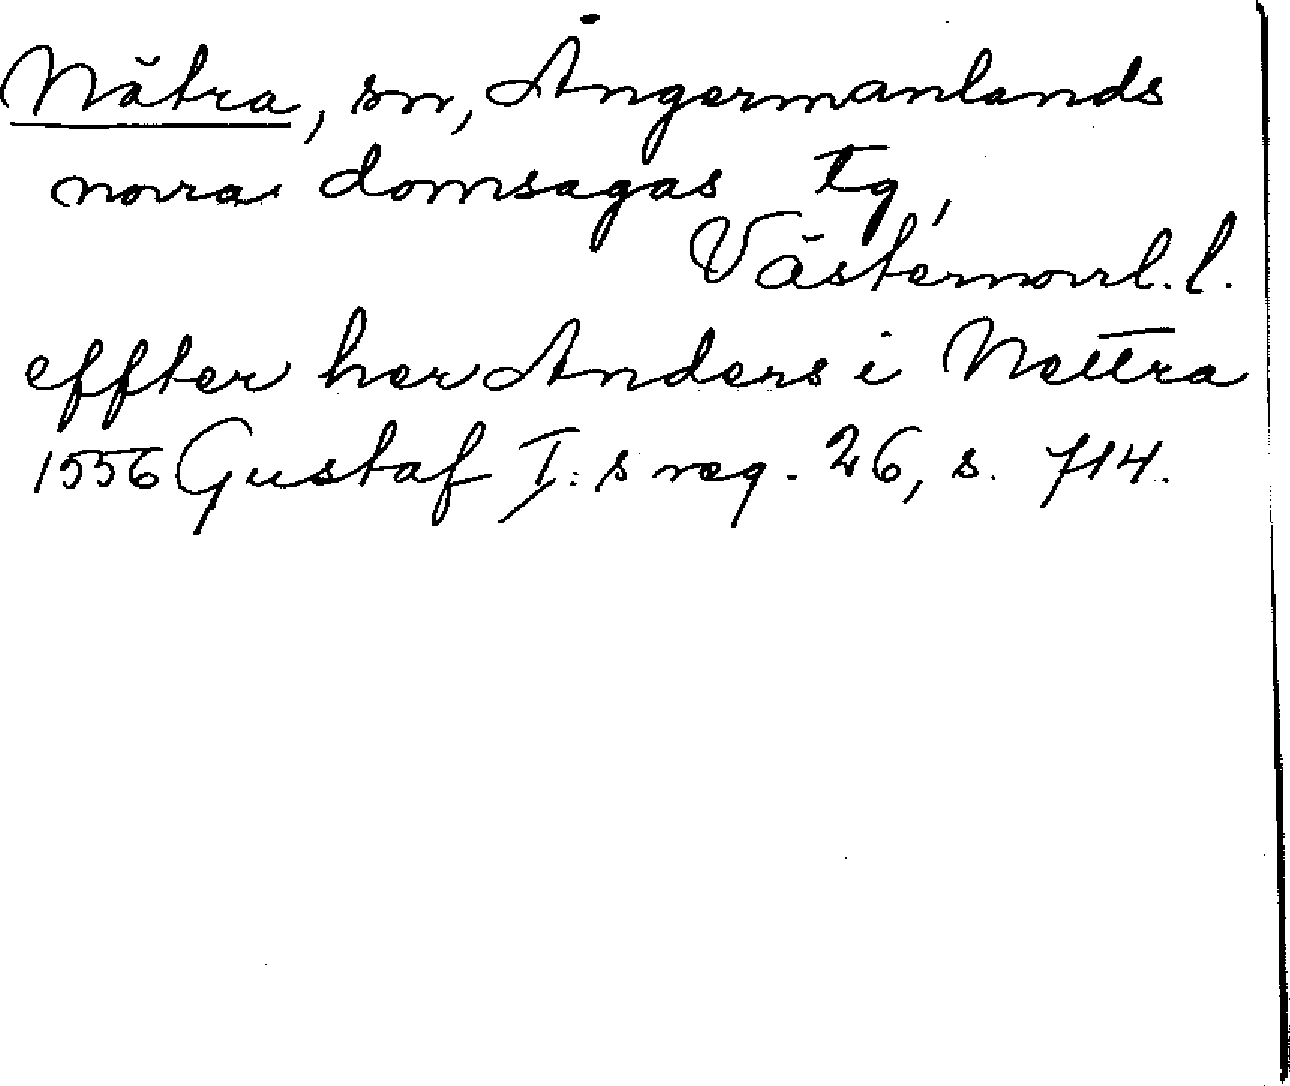 Nätra, sn, Ångermanlands
norra domsagas tg,
Västernorrl. l.
effter her Anders i Nettra
1556 Gustaf I:s reg. 26, s. 714.